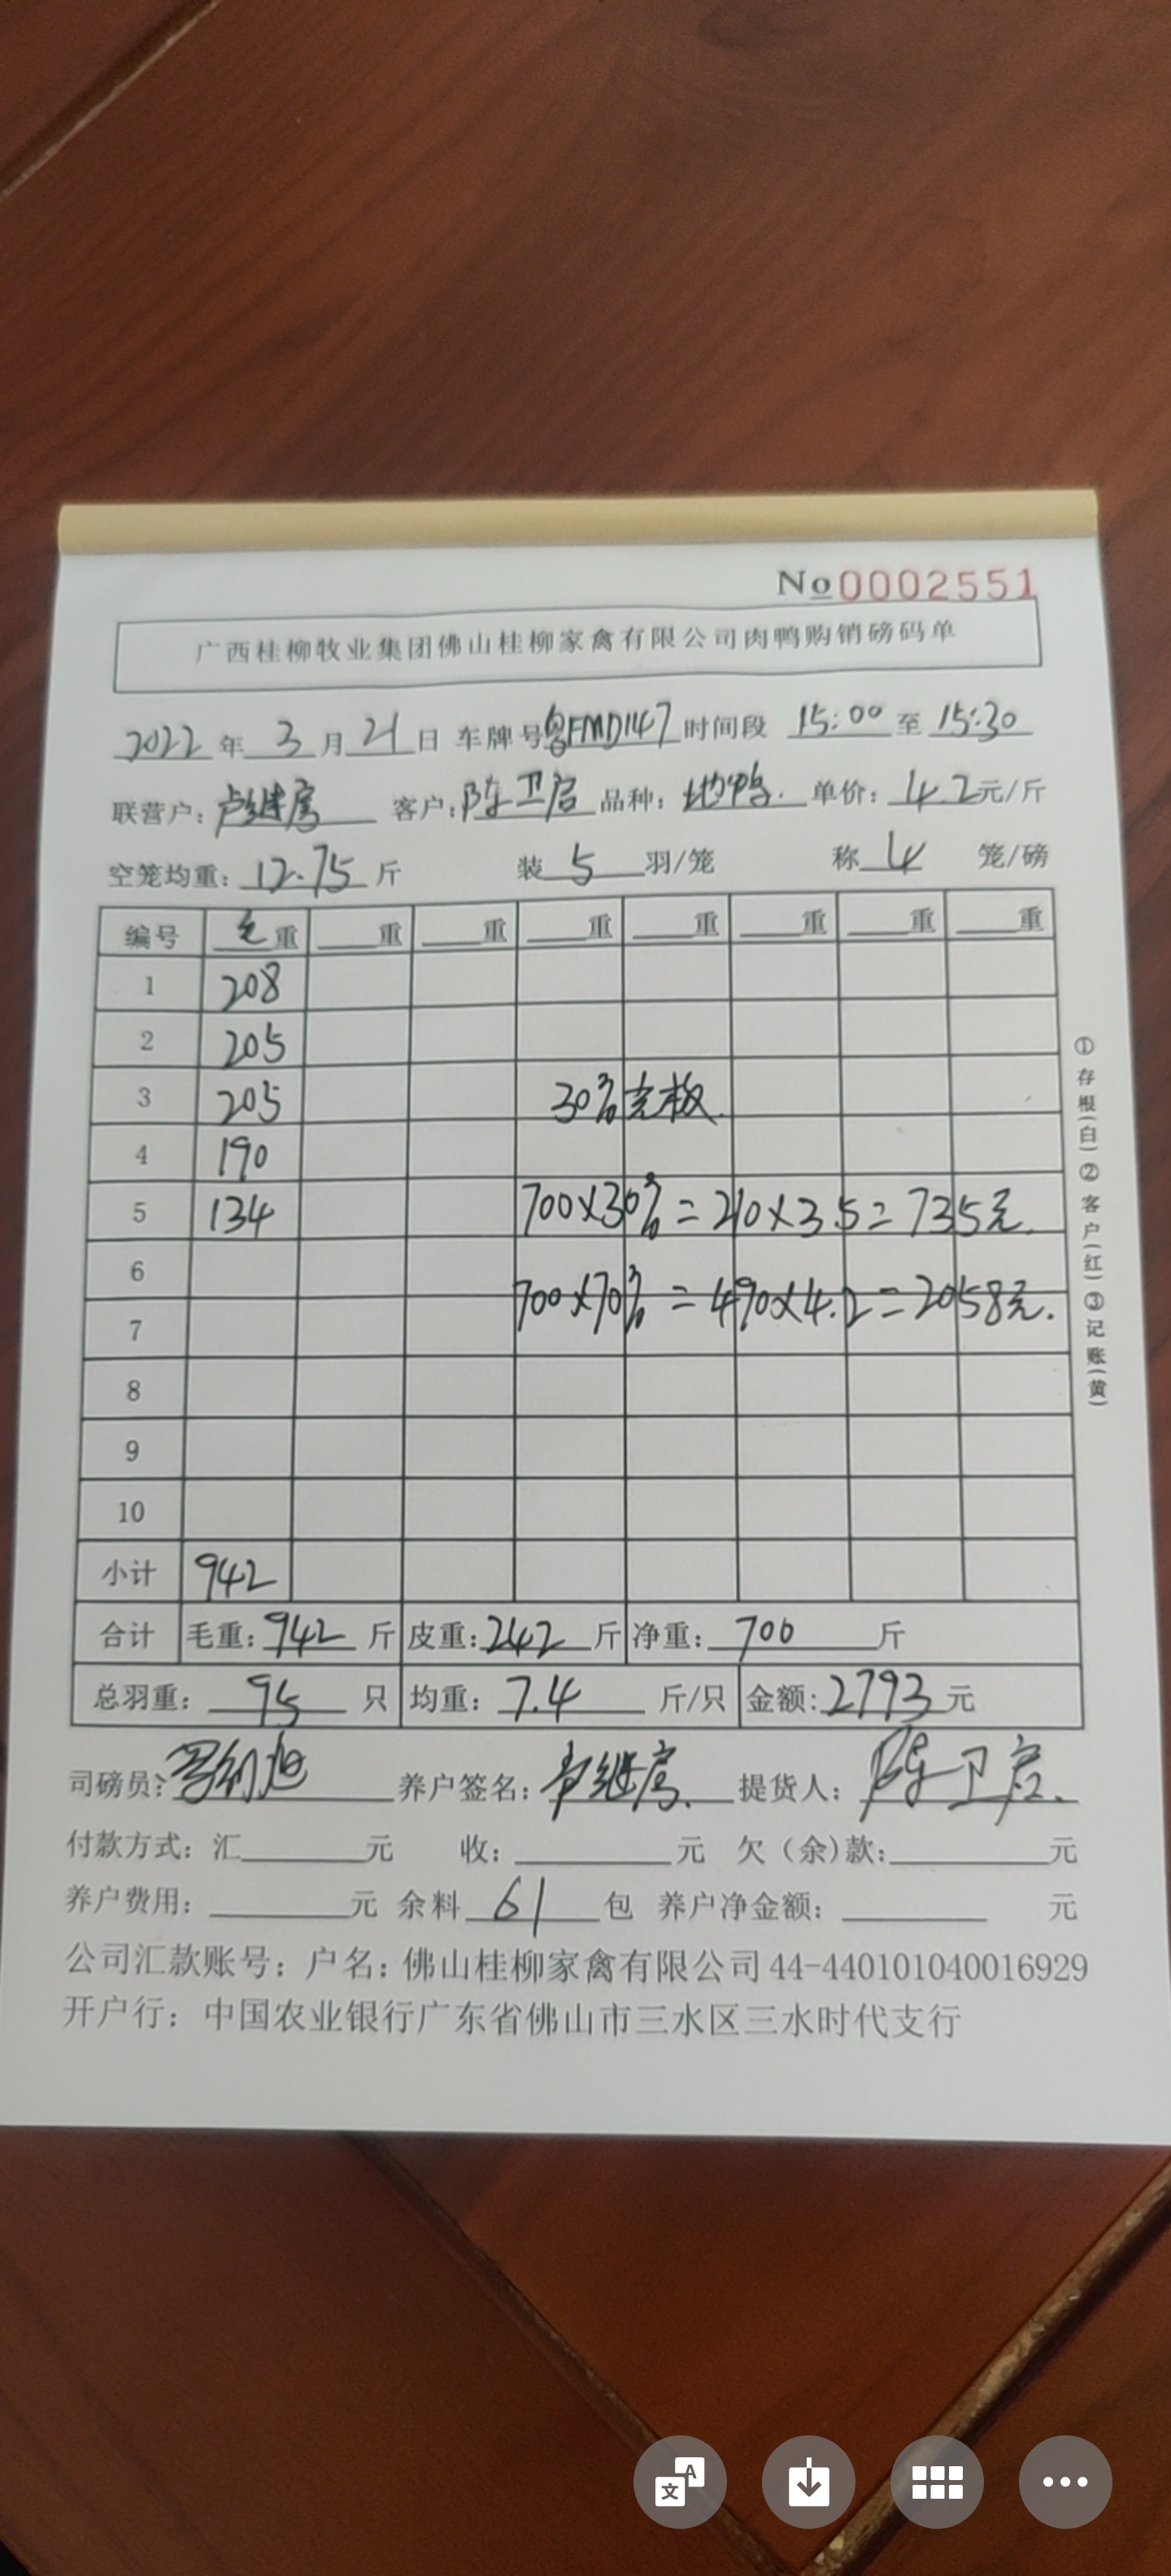 No0002551
广西桂柳牧业集团佛山桂柳家禽有限公司肉鸭购销磅码单
2022年3月21日 车牌号粤FMD147时间段 15:00至15:30
联营户:卢继房 客户:陈卫启 品种:地鸭. 单价:4.2元/斤
空笼均重:12.75斤 装5羽/笼 称4笼/磅
编号 毛重 重 重 重 重 重 重 重
1 208
2 205
3 205 30%壳板.
4 190
5 134 700×30%=210×3.5=735元.
6
700×70%=490×4.2=2058元.
7
8
9
10
小计 942
合计 毛重:942斤 皮重:242斤 净重:700斤
总羽重:95只 均重:7.4斤/只 金额:2793元
司磅员: 养户签名:继房. 提货人:陈卫启.
付款方式:汇元 收:元 欠(余)款:元
养户费用:元 余料61包 养户净金额:元
公司汇款账号:户名:佛山桂柳家禽有限公司44-440101040016929
开户行:中国农业银行广东省佛山市三水区三水时代支行
①存根(白)②客户(红)③记账(黄)